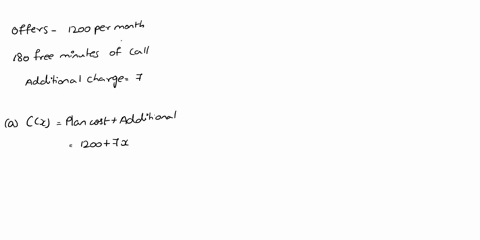 Offers - 1200 per month
180 free minutes of call
Additional charge = 7
(a) C(x) = Plan cost + Additional
= 1200 + 7x